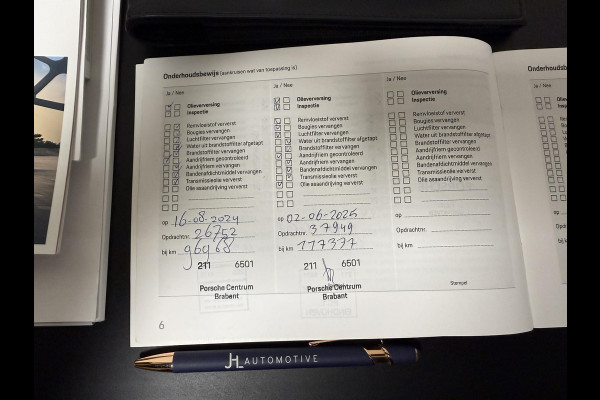 Onderhoudsbewijs (aankruisen wat van toepassing is)
Ja / Nee
Olieverversing
Inspectie
Remvloeistof ververst
Bougies vervangen
Luchtfilter vervangen
Water uit brandstoffilter afgetapt
Brandstoffilter vervangen
Aandrijfriem gecontroleerd
Aandrijfriem vervangen
Bandenafdichtmiddel vervangen
Transmissieolie ververst
Olie asaandrijving ververst
op 16-08-2024
Opdrachtnr. 26752
bij km 96968
211 6501
Porsche Centrum
Brabant
Ja / Nee
Olieverversing
Inspectie
Remvloeistof ververst
Bougies vervangen
Luchtfilter vervangen
Water uit brandstoffilter afgetapt
Brandstoffilter vervangen
Aandrijfriem gecontroleerd
Aandrijfriem vervangen
Bandenafdichtmiddel vervangen
Transmissieolie ververst
Olie asaandrijving ververst
op 02-06-2025
Opdrachtnr. 37949
bij km 117377
211 6501
Porsche Centrum
Brabant
Ja / Nee
Olieverversing
Inspectie
Remvloeistof ververst
Bougies vervangen
Luchtfilter vervangen
Water uit brandstoffilter afgetapt
Brandstoffilter vervangen
Aandrijfriem gecontroleerd
Aandrijfriem vervangen
Bandenafdichtmiddel vervangen
Transmissieolie ververst
Olie asaandrijving ververst
op
Opdrachtnr.
bij km
Stempel
6
Ja / Nee
JHL AUTOMOTIVE